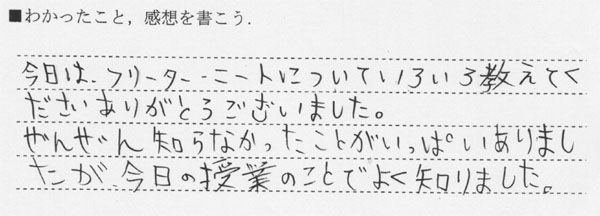 ■わかったこと，感想を書こう．
今日は、フリーター・ニートについていろいろ教えてく
ださいありがとうございました。
ぜんぜん知らなかったことがいっぱいありまし
たが、今日の授業のことでよく知りました。